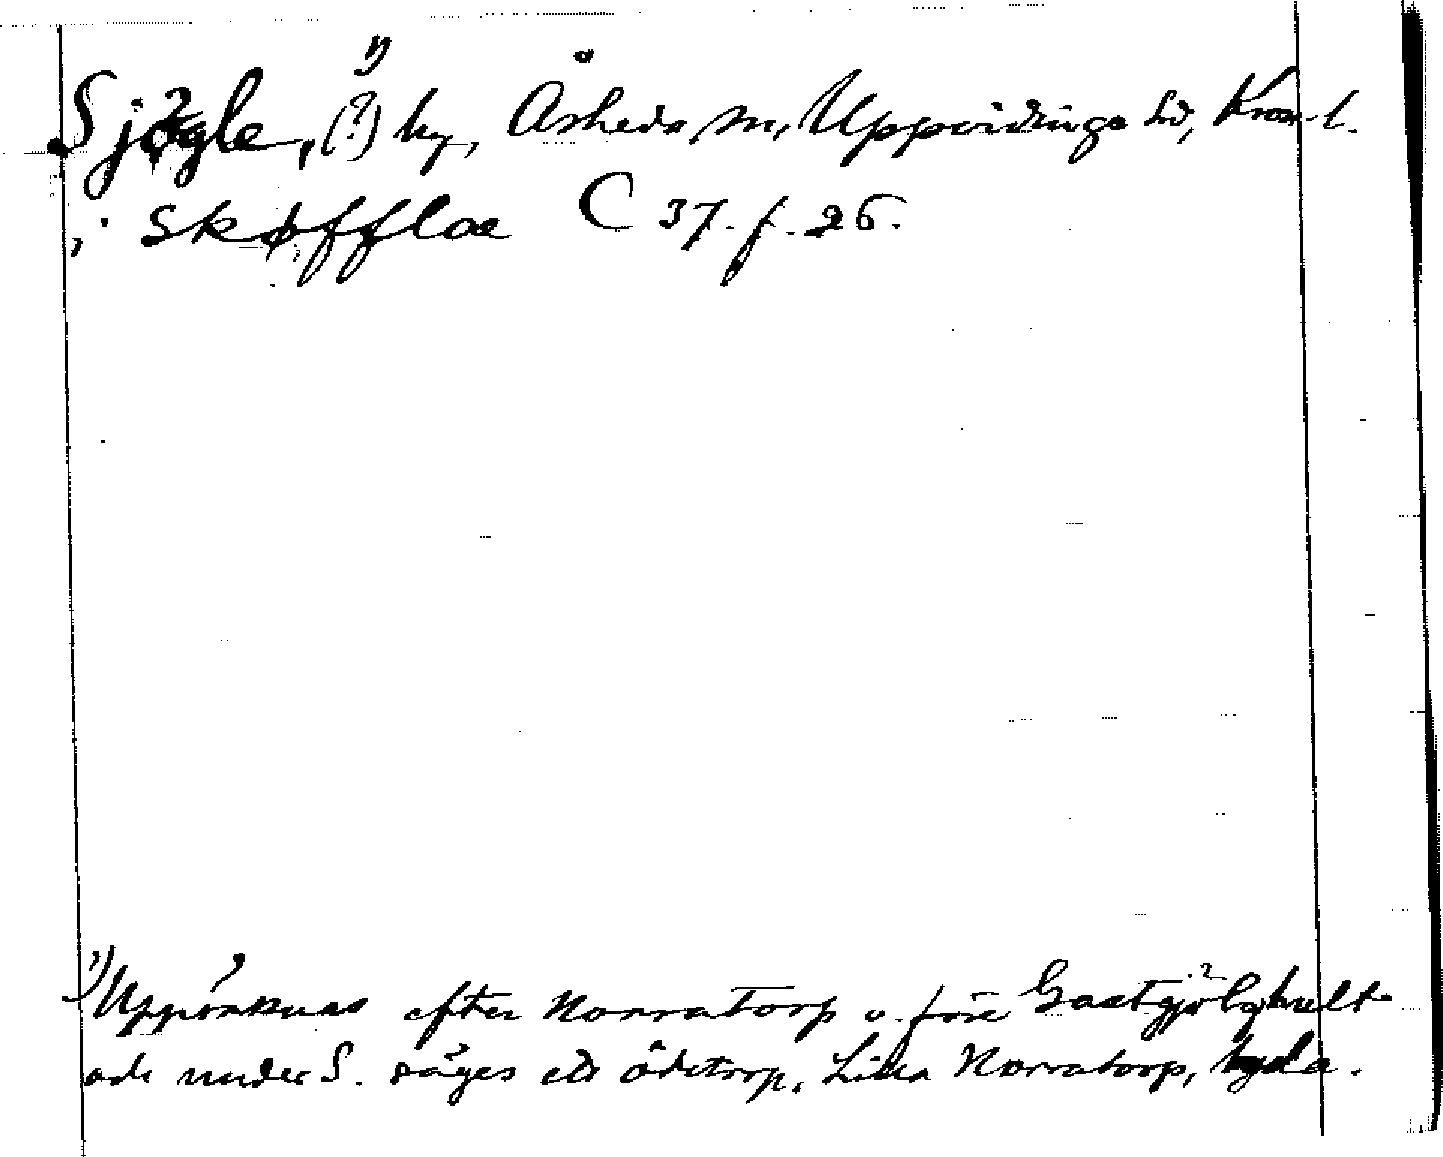 Sjögle, (?) ¹) by, Åsheda sn, Uppvidinge hd, Kron. l.
i Skøfflæ C 37. f. 26.
¹) Uppräknas efter Norratorp o. före Gastgjölshult
och under S. säges ett ödetorp, Lilla Norratorp, lyda.